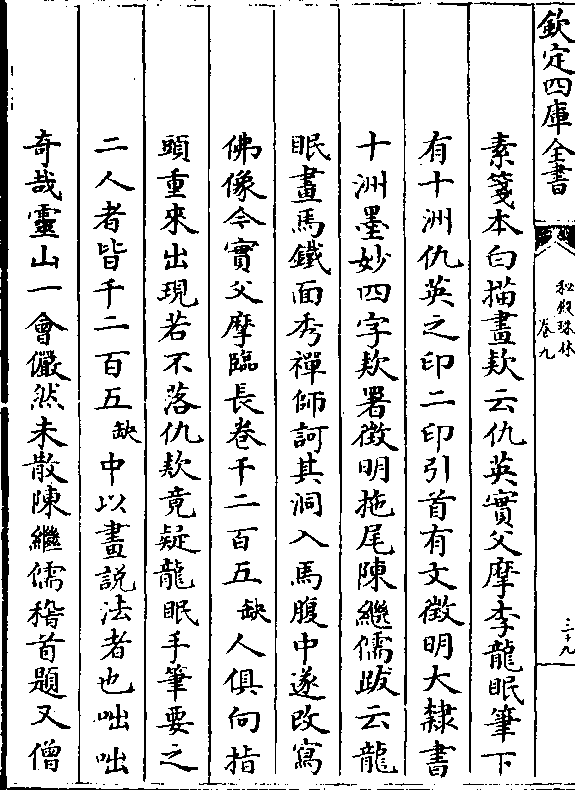 欽定四庫全書
秘殿珠林
卷九
三十九
素箋本白描畫欵云仇英實父摩李龍眠筆下
有十洲仇英之印二印引首有文徵明大隸書
十洲墨妙四字欵署徵明拖尾陳繼儒跋云龍
眠畫馬鐵面秀禪師訶其洞入馬腹中遂改寫
佛像今實父摩臨長卷千二百五缺人俱向指
頭重來出現若不落仇欵竟疑龍眠手筆要之
二人者皆千二百五缺中以畫說法者也咄咄
奇哉靈山一會儼然未散陳繼儒稽首題又僧